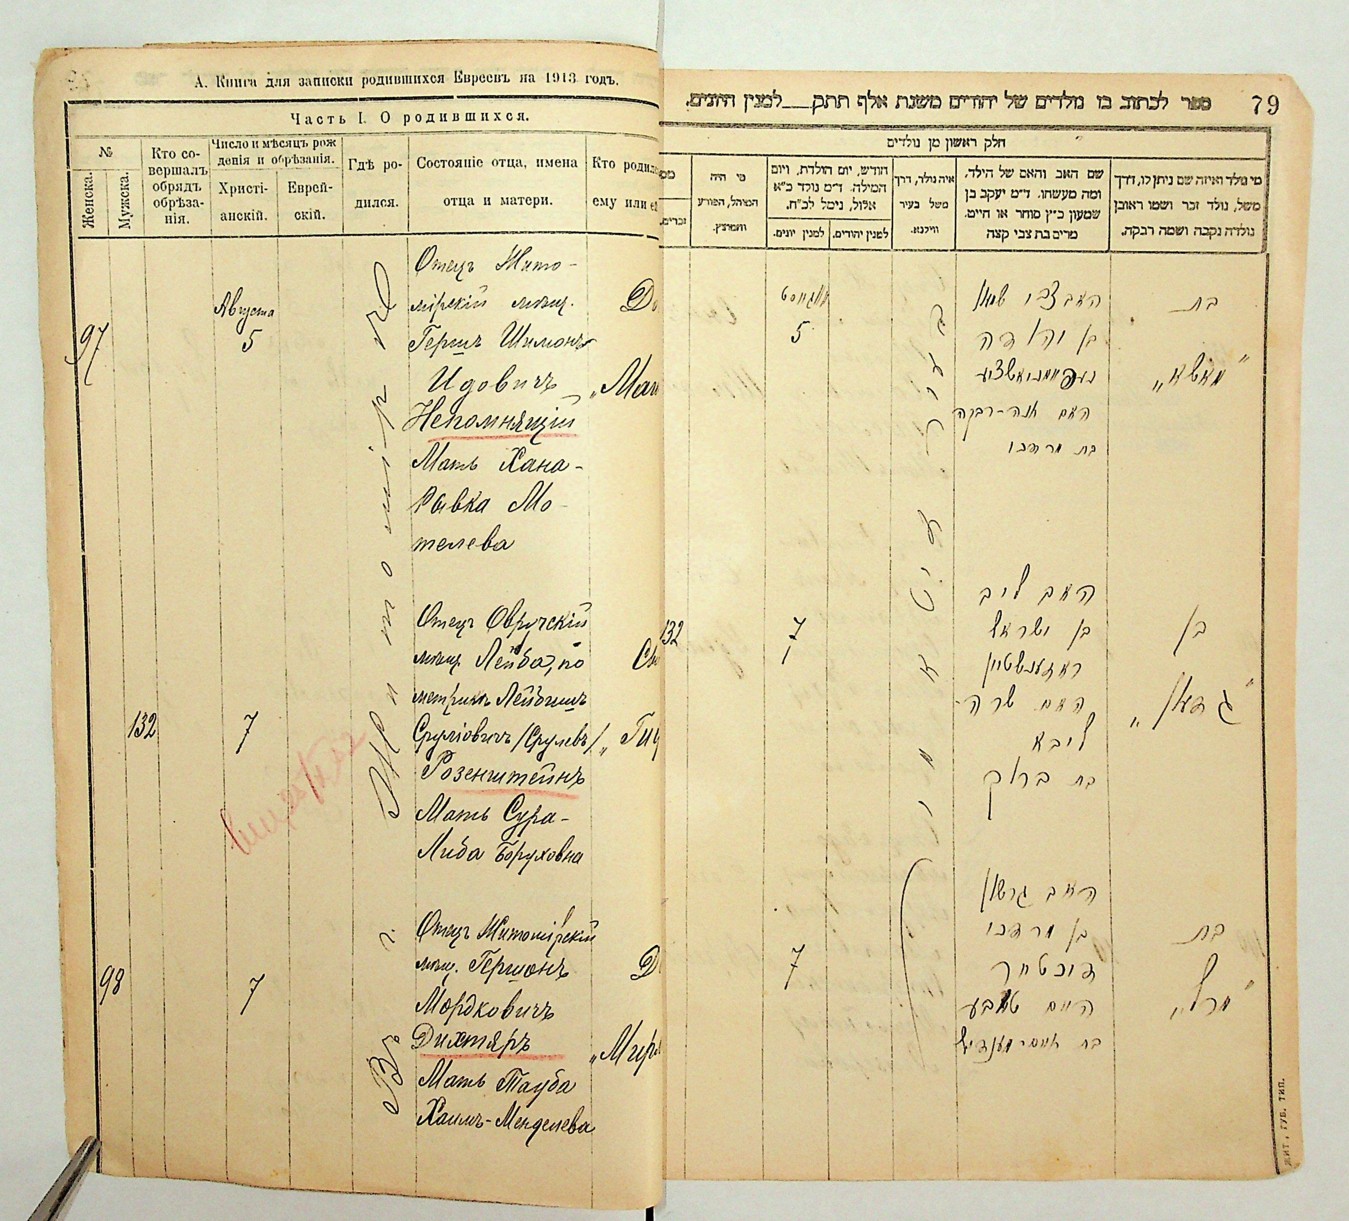 А. Книга для записки родившихся Евреевъ на 1913 годъ.
Часть I. О родившихся.
№
Женска.
Мужска.
Кто со-
вершалъ
обрядъ
обрѣза-
нія.
Число и мѣсяцъ рож
денія и обрѣзанія.
Христі-
анскій.
Еврей-
скій.
Гдѣ ро-
дился.
Состояніе отца, имена
отца и матери.
Кто родилс
ему или е
97
Августа
5
Отецъ Жито-
мірскій мѣщ.
Гершъ Шимонъ
Идовичъ
Непомнящій
Мать Хана-
Рывка Мо-
телева
До
„Ман
132
7
Отецъ Овручскій
мѣщ. Лейба, по
метрикѣ Лейбишъ
Сруліовичъ /Срулевъ/
Розенштейнъ
Мать Сура-
Либа Боруховна
Сы
„Гид
98
7
Отецъ Житомірскій
мѣщ. Гершонъ
Мордковичъ
Дихтяръ
Мать Тауба
Хаимъ-Менделева
Д
„Мир
Въ г. Житомірѣ
ספר לכתוב בו נולדים של יהודים משנת אלף תתק__למנין היונים.
79
חלק ראשון מן נולדים
מי נולד ואיזה שם ניתן לו, דרך
משל, נולד זכר ושמו ראובן
נולדה נקבה ושמה רבקה.
שם האב והאם של הילד,
ומה מעשהו. ד״מ יעקב בן
שמעון כ״ץ סוחר או חיים.
מרים בת צבי קצה
איה נולד, דרך
משל בעיר
ווילנא.
חודש, יום הולדת, ויום
המילה. ד״מ נולד כ״א
אלול, נימל לכ״ח.
למנין יהודים.
למנין יונים.
מי היה
המוהל, הפורע
והמוצץ.
זכרים.
בת
„מאשא“
האב צבי שמעון
בן יהודה
נעפאמניאשציע
האם חנה-רבקה
בת מרדכי
אווגוסט
5
בן
„גדעון“
האב ליב
בן ישראל
ראזענשטיין
האם שרה-
ליבא
בת ברוך
7
132
בת
„מרל“
האב גרשון
בן מרדכי
דיכטיאר
האם טאבע
בת חיים-מענדיל
7
בעיר זיטאמיר
ЖИТ. ГУБ. ТИП.